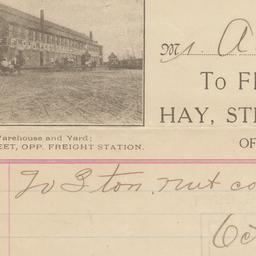 Mrs. A
To F
HAY, ST
OF
Warehouse and Yard;
EET, OPP. FREIGHT STATION.
To 3 ton nut co